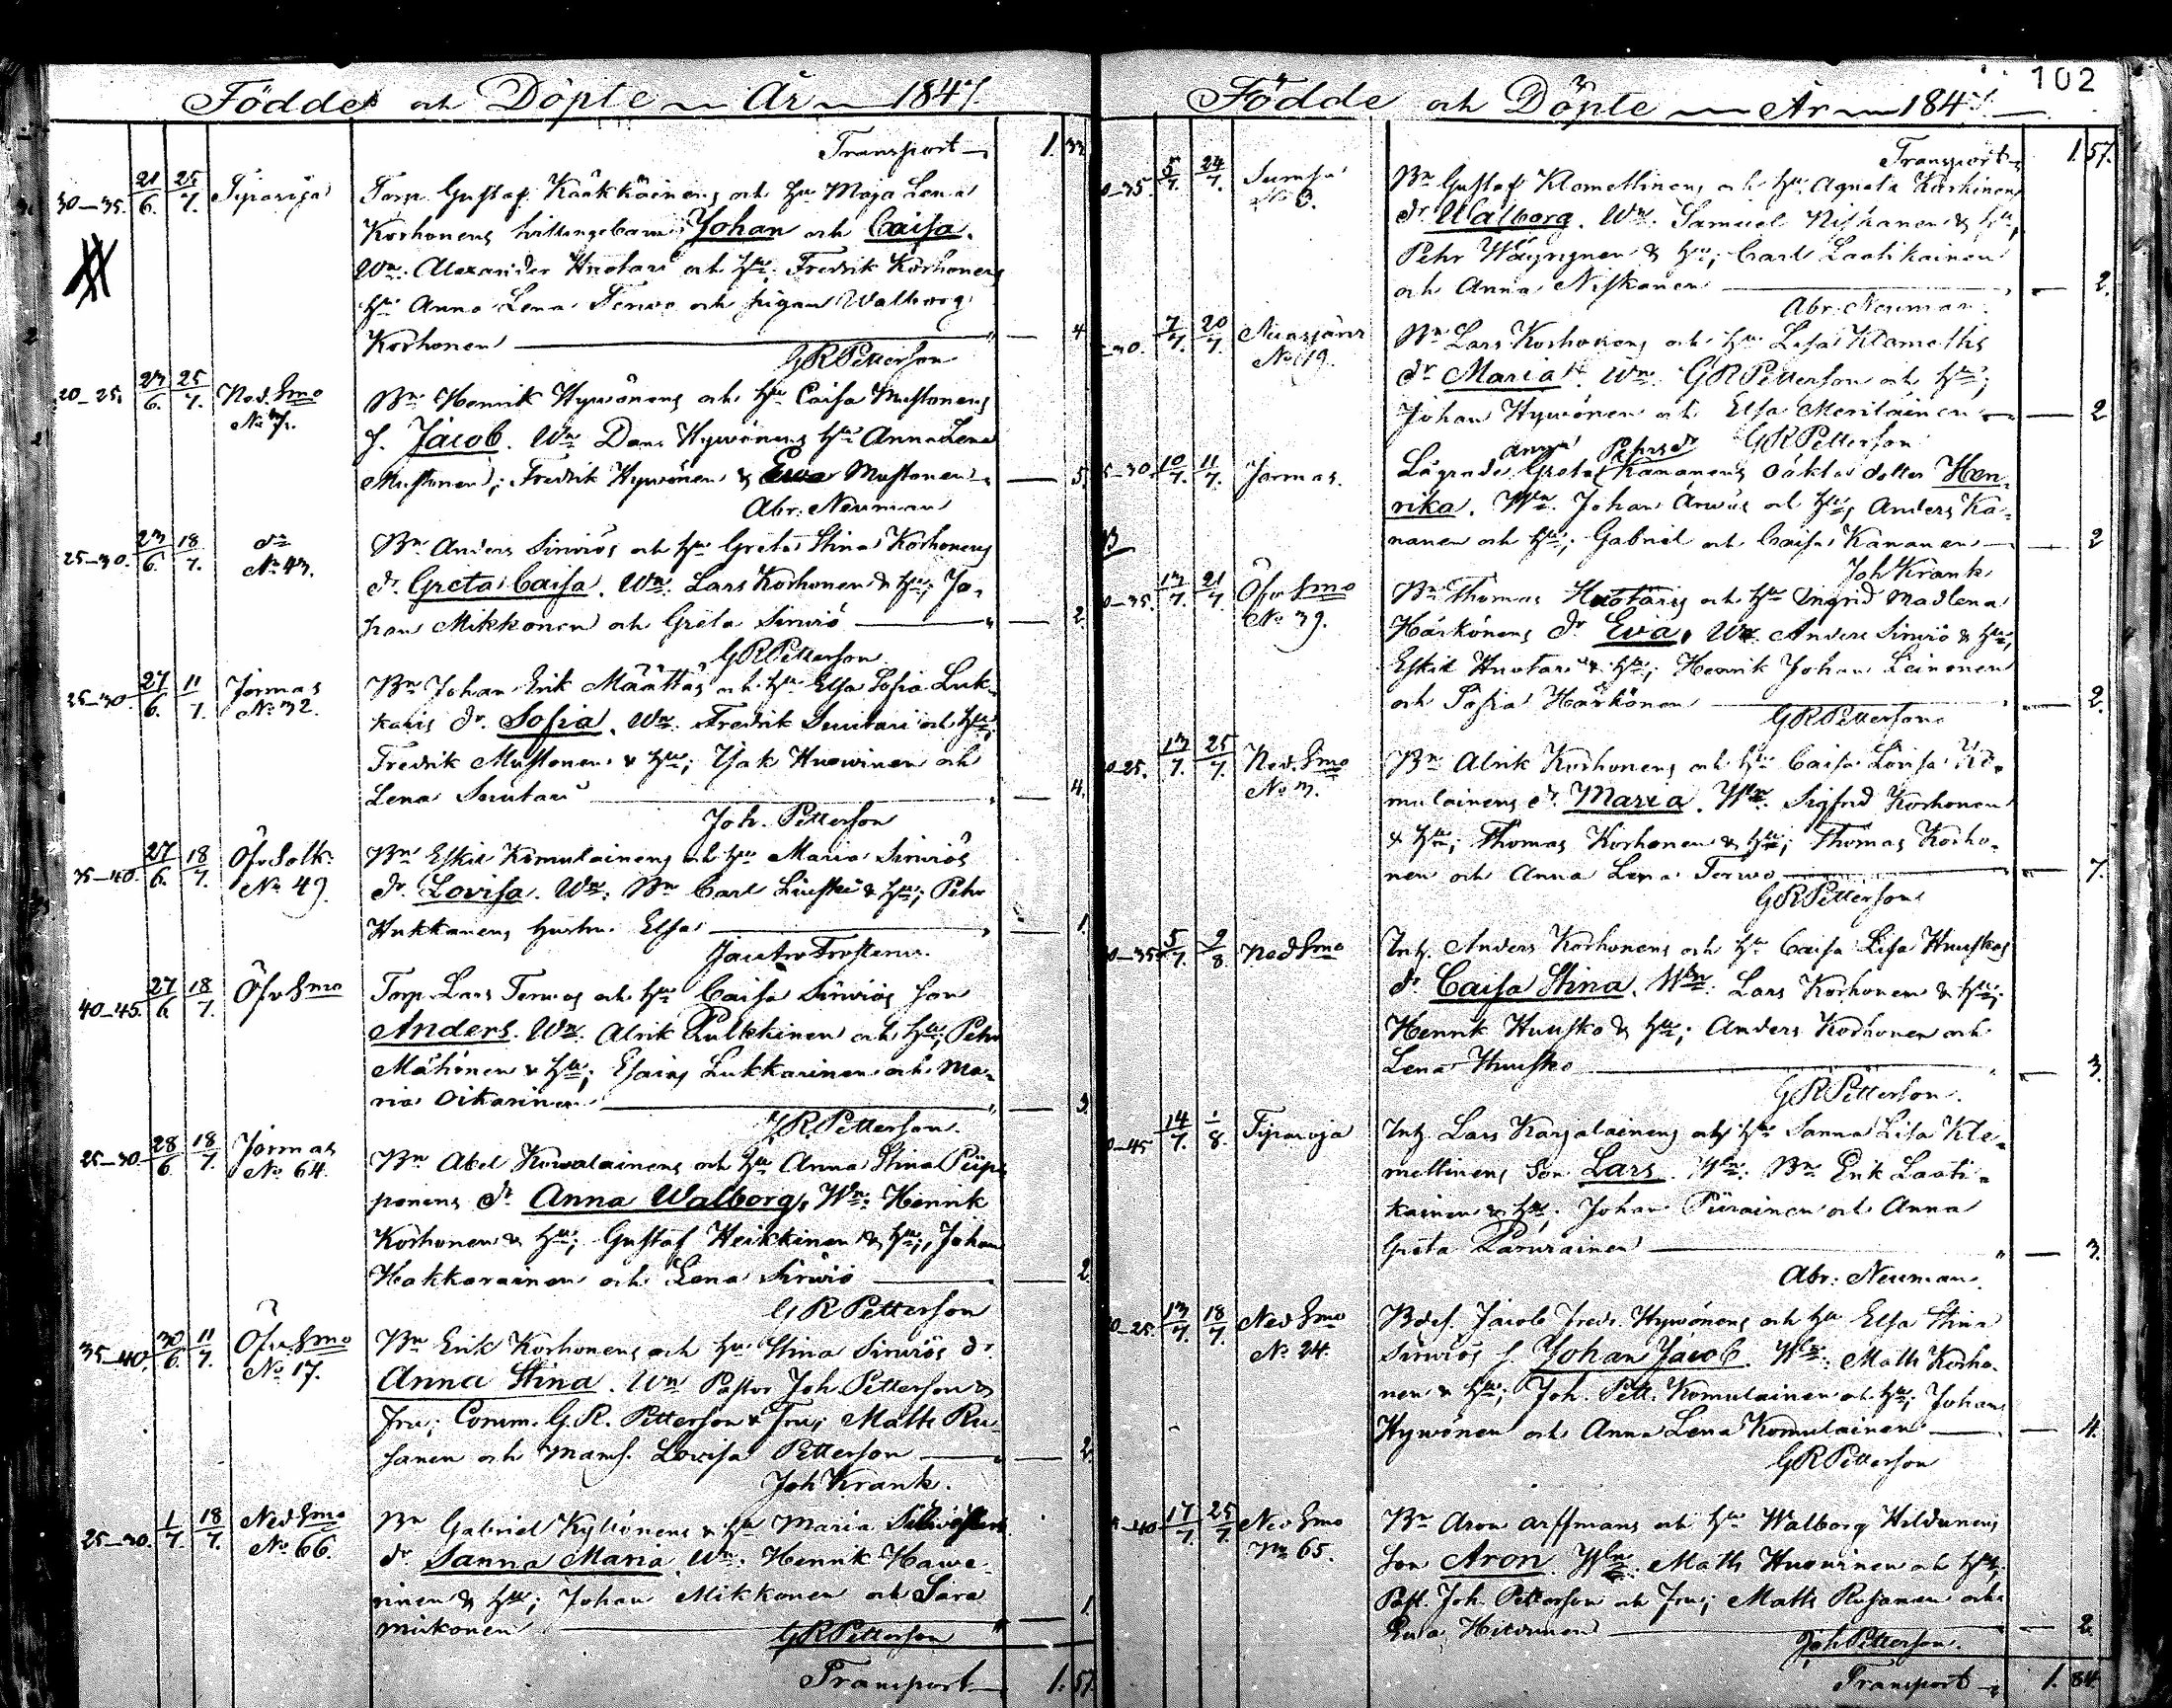 Födde och Döpte År 1847.
Transport 1. 33
30–35. 21/6. 25/7. Tiparoja Torp. Gustaf Kääkkäinens och hu Maja Lena
Korhonens tvillingebarn Johan och Caisa.
Wn. Alexander Huotari och hu; Fredrik Korhonens
hu Anna Lena Terwo och pigan Walborg
Korhonen — 4
GRPetterson
20–25. 23/6. 25/7. Ned. Smo Bn Henrik Hywönens och hu Caisa Mustonens
No
s. Jacob. Wn Dan. Hywönens hu Anna Lena
Mustonen; Fredrik Hywönen & Ewa Mustonen — 5.
Abr. Neuman
25–30. 23/6. 18/7. do Bn Anders Sirwiös och hu Greta Stina Korhonens
No 43.
dr. Greta Caisa. Wn. Lars Korhonen & hu; Jo-
han Mikkonen och Greta Sirwiö — 2.
GRPetterson
25–30. 27/6. 11/7. Jormas Bn Johan Erik Määttäs och hu Elsa Sofia Luk-
No 32.
karis dr. Sofia. Wn. Fredrik Suutari och hu;
Fredrik Mustonen & hu; Isak Huowinen och
Lena Suutari — 4.
Joh. Petterson
35–40. 27/6. 18/7. Öfv Sotk. Bn Eskil Komulainens och hu Maria Sirwiös
No 49.
dr. Lovisa. Wn. Bn Carl & hu; Pehr
Hukkanens hustru Elsa — 1.
40–45. 27/6. 18/7. Öfv Smo Torp. Lars Terwos och hu Caisa Sirwiös son
Anders. Wn. Alrik Pulkkinen och hu; Pehr
Mähönen & hu; Esaias Lukkarinen och Ma-
ria Oikarinen — 3.
GRPetterson.
25–30. 28/6. 18/7. Jormas Bn Abel Kowalainens och hu Anna Stina Piip-
No 64.
ponens dr. Anna Walborg. Wn. Henrik
Korhonen & hu; Gustaf Heikkinen & hu; Johan
Hakkarainen och Lena Sirwiö — 2
GRPetterson
35–40. 30/6. 11/7. Öfv. Smo Bn Erik Korhonens och hu Stina Sirwiös dr
No 17.
Anna Stina. Wn Pastor Joh Petterson &
Fru; Comm. G.R. Petterson & Fru; Matts Ru-
sanen och Mams. Lovisa Petterson — 2.
Joh Krank.
25–30. 1/7. 18/7. Ned Smo Bn Gabriel Kylönens & hu Maria
No 66.
dr Sanna Maria. Wn. Henrik Hawe-
rinen & hu; Johan Mikkonen och Sara
Mikonen — 1.
GRPetterson
Transport 1. 57.
102
Födde och Döpte År 1847.
Transport 1 57.
–35. 5/7. 24/7. Sumsa Bn Gustaf Klemettinens och hu Agneta Karhinens
No 6.
dr Walborg. Wn. Samuel Niskanen & hu,
Pehr Wäyrynen & hu; Carl Laatikainen
och Anna Niskanen — 2.
Abr. Neuman
–30. 7/7. 20/7. Nuasjärvi Bn Lars Korhonens och hu Lisa Klemettis
No 119.
dr Maria. Wn. GRPetterson och hu;
Johan Hywönen och Elsa Meriläinen — 2
GRPetterson
–30 10/7. 11/7. Jormas. Lägrade Greta Pehrsdr Kananens oäkta dotter Hen-
rika. Wn. Johan Arwiö och hu; Anders Ka-
nanen och hu; Gabriel och Caisa Kananen — 2
Joh Krank
–35. 13/7. 21/7. Öfv Smo Bn Thomas Huotaris och hu Ingrid Madlena
No 39.
Härkönens dr. Eva. Wn. Anders Sirwiö & hu,
Eskil Huotari & hu; Henrik Johan Leinonen
och Sofia Härkönen — 2.
GRPetterson
–25. 13/7. 25/7. Ned. Smo Bn Alrik Korhonens och hu Caisa Lovisa Ko-
No 3.
mulainens dr. Maria. Wn. Sigfrid Korhonen
& hu; Thomas Korhonen & hu; Thomas Korho-
nen och Anna Lena Terwo — 7.
GRPetterson
–35 5/7. 9/8. Ned Smo Inh. Anders Korhonens och hu Caisa Lisa Huuskos
dr. Caisa Stina. Wn. Lars Korhonen & hu;
Henrik Huusko & hu; Anders Korhonen och
Lena Huusko — 3.
GRPetterson.
–45 14/7. 1/8. Tiparoja Inh. Lars Karjalainens och hu Sanna Lisa Kle-
mettinens son Lars. Wn. Bn Erik Laati-
kainen & hu; Johan Piirainen och Anna
Greta — 3.
Abr. Neuman.
–25. 13/7. 18/7. Ned Smo Bdes. Jacob Fredr. Hywönens och hu Elsa Stina
No 24.
Sirwiös s. Johan Jacob. Wn. Matts Korho-
nen & hu; Joh. Pett. Komulainen och hu; Johan
Hywönen och Anna Lena Komulainen — 4.
GRPetterson
–40 17/7. 25/7. Ned Smo Bn Aron Arffmans och hu Walborg Hildunens
No 65.
son Aron. Wn. Matts Huowinen och hu;
Past. Joh. Petterson och Fru; Matts Rusanen och
Eva Hildunen — 2.
Joh Petterson.
Transport 1. 84